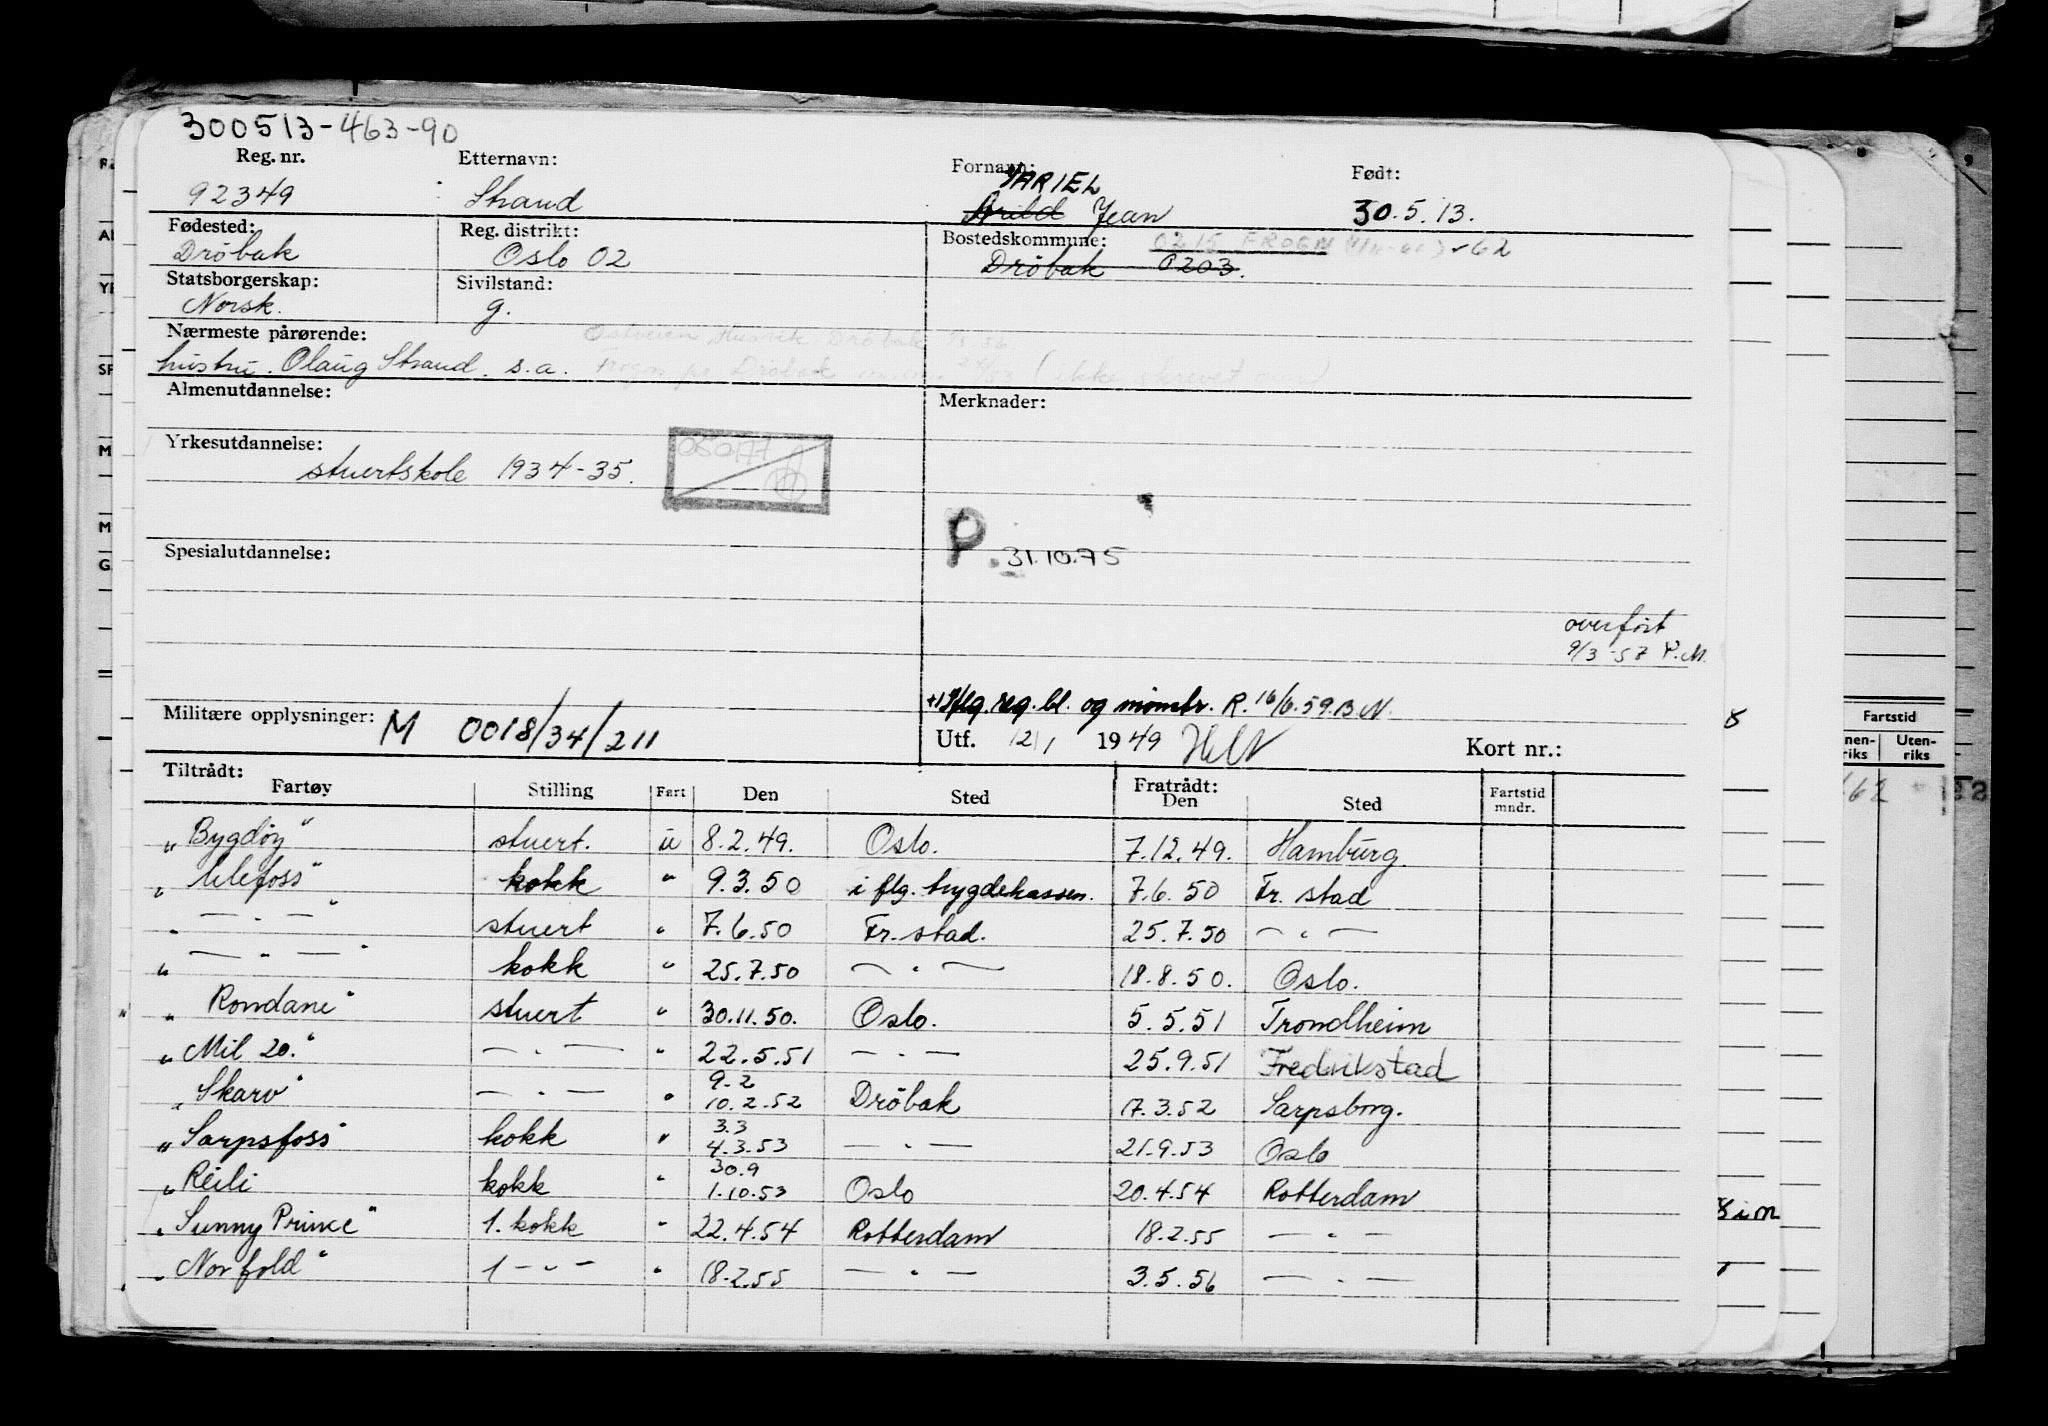 300513-463-90
Reg. nr. Etternavn: Fornavn: Født:
92349 Strand ARIEL
Arild Jean 30.5.13.
Fødested: Reg. distrikt: Bostedskommune: 0215 FROGN
Dröbak Oslo 02 Dröbak 0203.
Statsborgerskap: Sivilstand:
Norsk. g.
Nærmeste pårørende:
hustru. Olaug Strand. s.a.
Almenutdannelse: Merknader:
Yrkesutdannelse:
stuertskole 1934-35.
P. 31.10.75
Spesialutdannelse:
overført
9/3-57 P.M.
flg. reg. bl. og mönstr. R. 16/6.59. B N.
Militære opplysninger: M 0018/34/211 Utf. 12/1 1949 Kort nr.:
Tiltrådt: Fratrådt:
Fartøy Stilling Fart Den Sted Den Sted Fartstid mndr.
„Bygdöy" stuert. u 8.2.49. Oslo. 7.12.49. Hamburg.
„Ulefoss" kokk " 9.3.50 i flg. trygdekassen. 7.6.50 Fr. stad
„ — " — " stuert " 7.6.50 Fr. stad. 25.7.50 — " —
„ — " — " kokk " 25.7.50 — " — 18.8.50. Oslo.
„Rondane" stuert " 30.11.50. Oslo. 5.5.51 Trondheim
„Mil 20." — " — " 22.5.51 — " — 25.9.51 Fredrikstad
„Skarv" — " — " 9.2 10.2.52 Dröbak 17.3.52 Sarpsborg.
„Sarpsfoss" kokk " 3.3 4.3.53 — " — 21.9.53 Oslo
„Reili kokk " 30.9 1.10.53 Oslo 20.4.54 Rotterdam
„Sunny Prince" 1. kokk " 22.4.54 Rotterdam 18.2.55 — " —
„Norfold" 1 — " — " 18.2.55 — " — 3.5.56 — " —
Fartstid
Uten-
riks